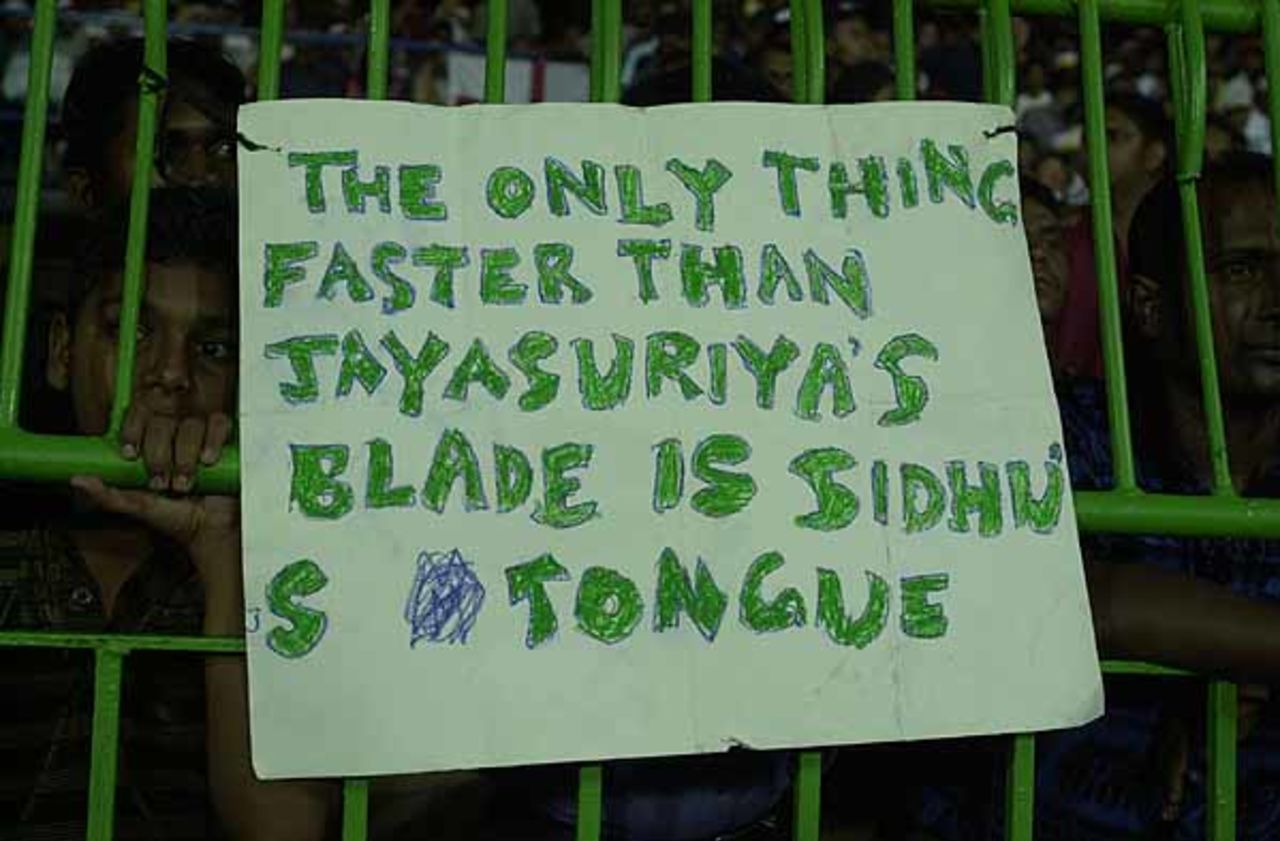 THE ONLY THING
FASTER THAN
JAYASURIYA'S
BLADE IS SIDHU'
S TONGUE